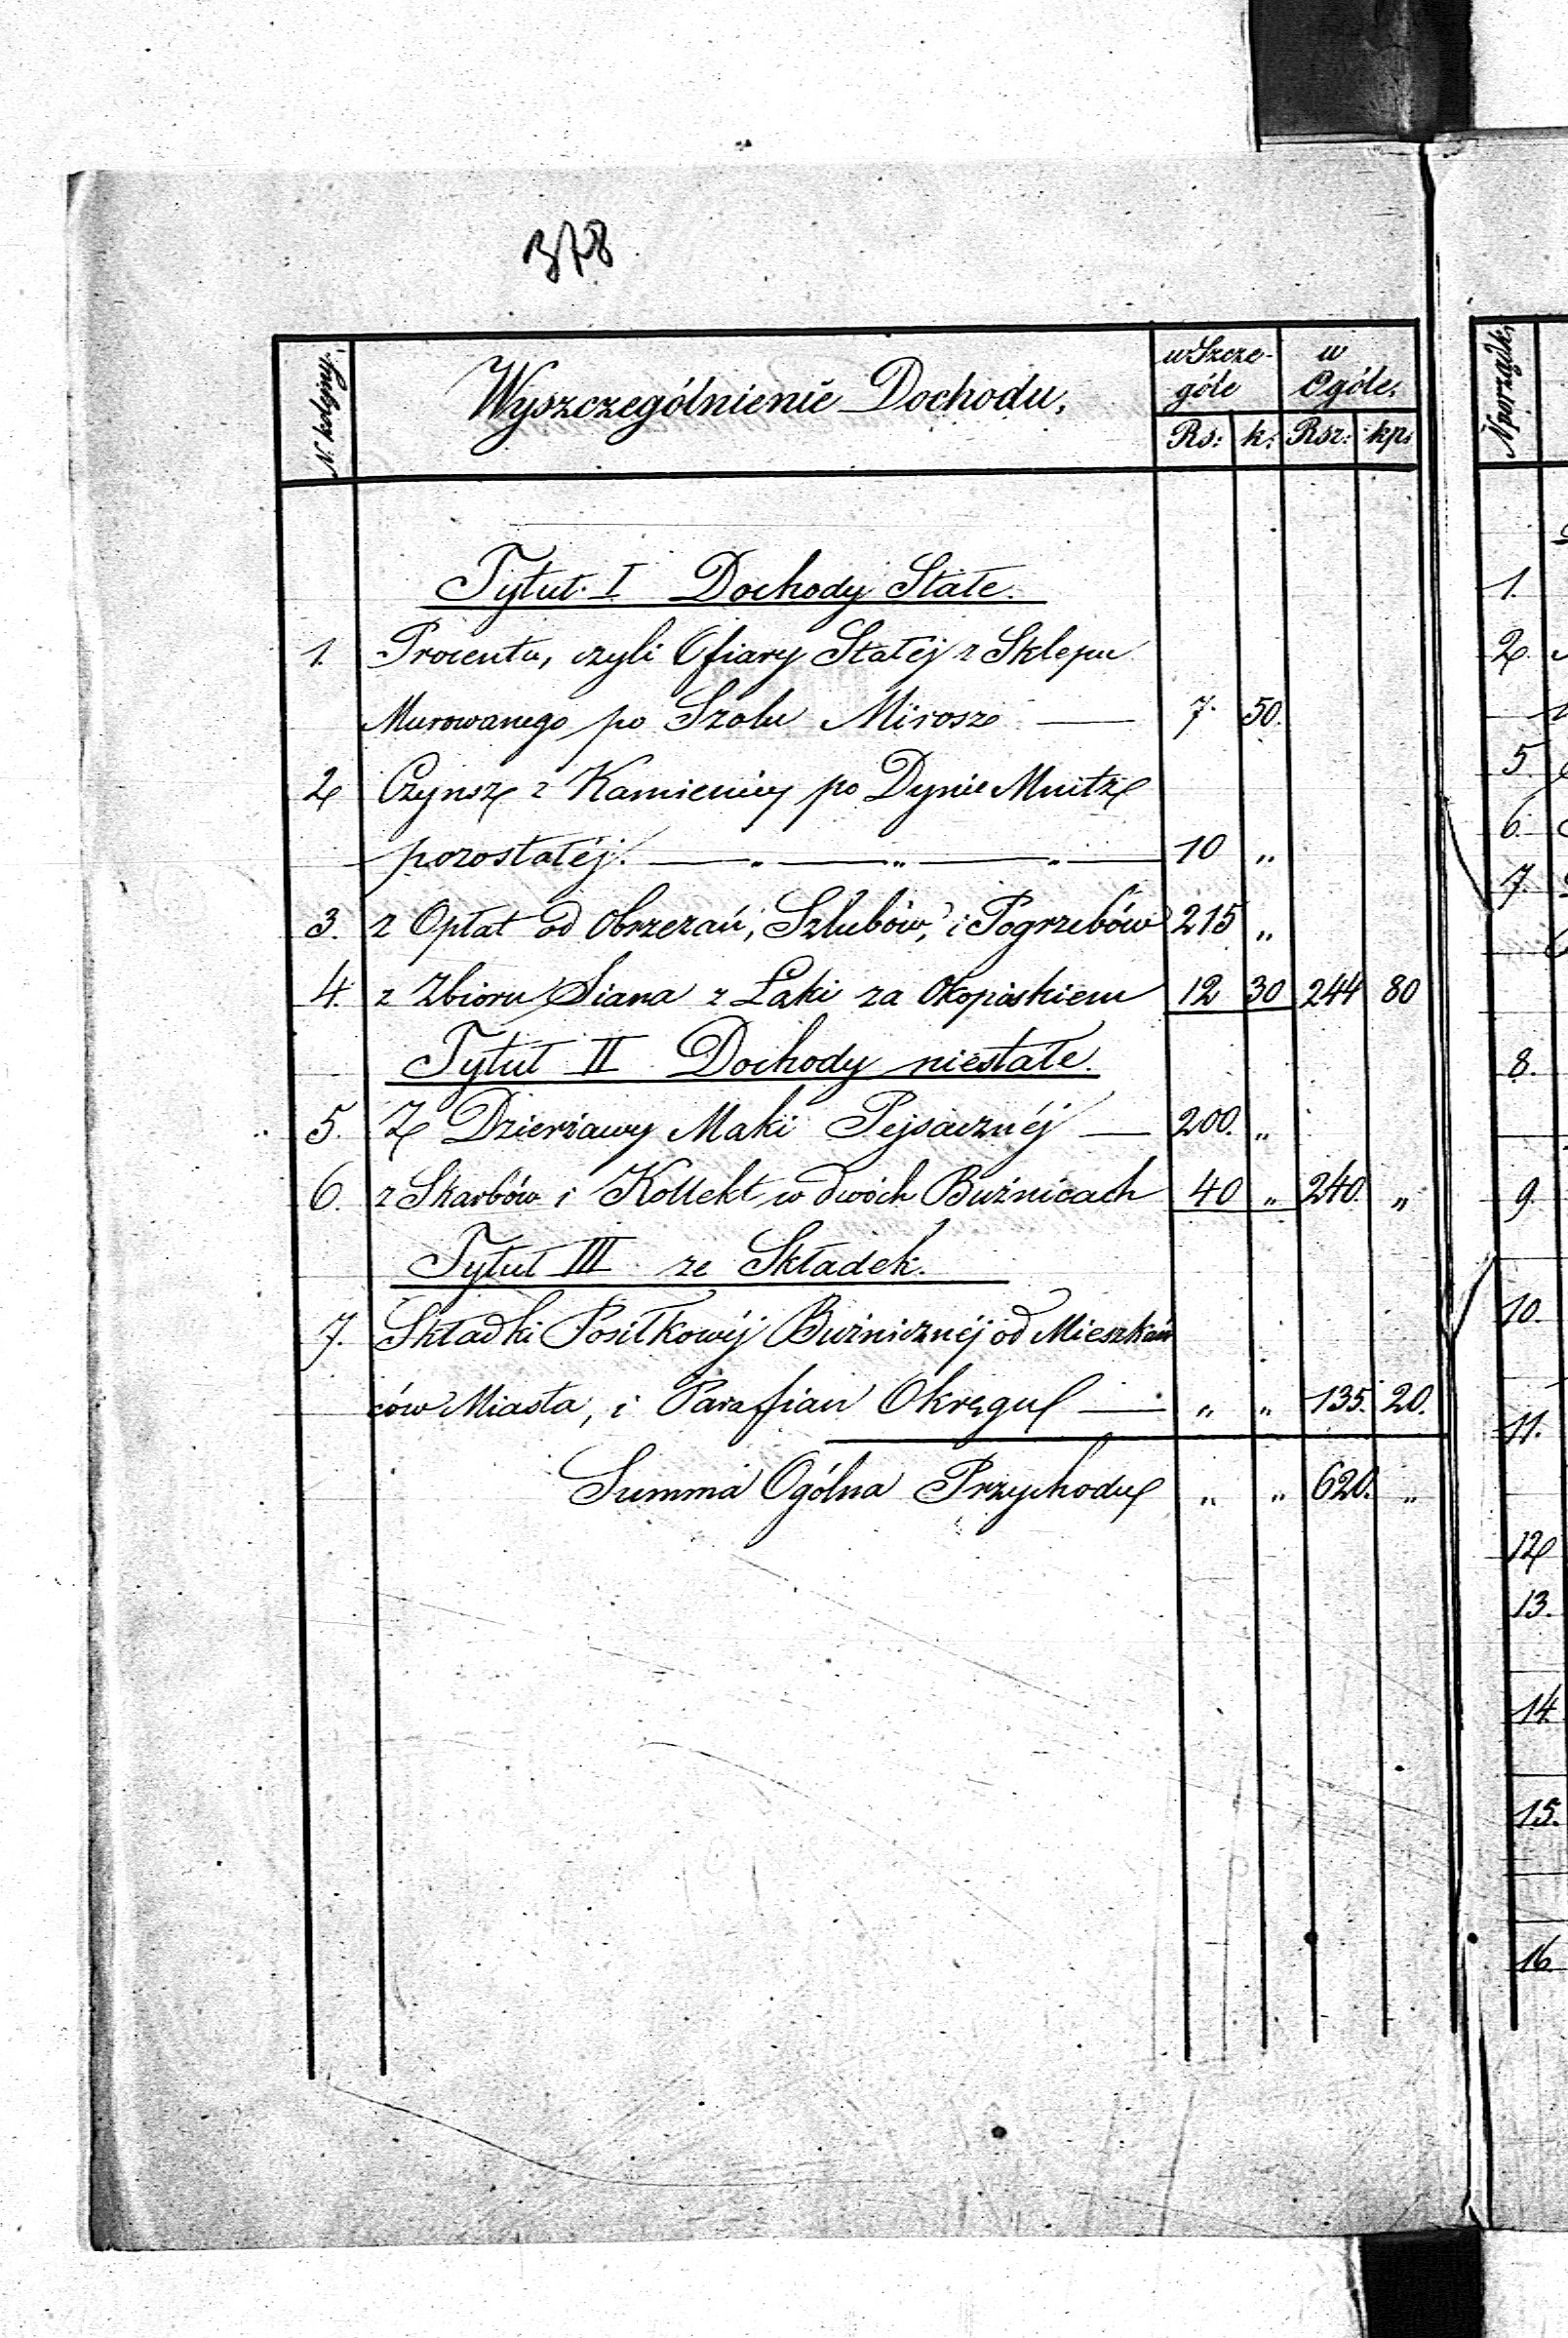 378
N. kolejny. Wyszczególnienie Dochodu, w Szcze- w
góle Ogóle.
Rs: k: Rsr: kp:
Tytuł I Dochody Stałe.
1. Procentu, czyli Ofiary Stałéj z Sklepu
Murowanego po Szolu Mirosz — 7. 50.
2 Czynsz z Kamienicy po Dynie Mnitz
pozostałéj. — „ — „ — „ — 10 „
3. z Opłat od Obrzezań, Szlubów, i Pogrzebów 215 „
4. z Zbioru Siana z Łąki za Okopiskiem 12 30 244 80
Tytuł II Dochody niestałe.
5. Z Dzierżawy Mąki Pejsacznéj — 200. „
6. z Skarbów i Kollekt w dwóch Buźnicach 40 „ 240. „
Tytuł III ze Składek.
7. Składki Posiłkowéj Buźnicznéj od Mieszkań
ców Miasta, i Parafian Okręgu — „ „ 135. 20.
Summa Ogólna Przychodu „ „ 620. „
N porządk.
1.
2.
5.
6.
7.
8.
9.
10.
11.
12
13.
14
15.
16